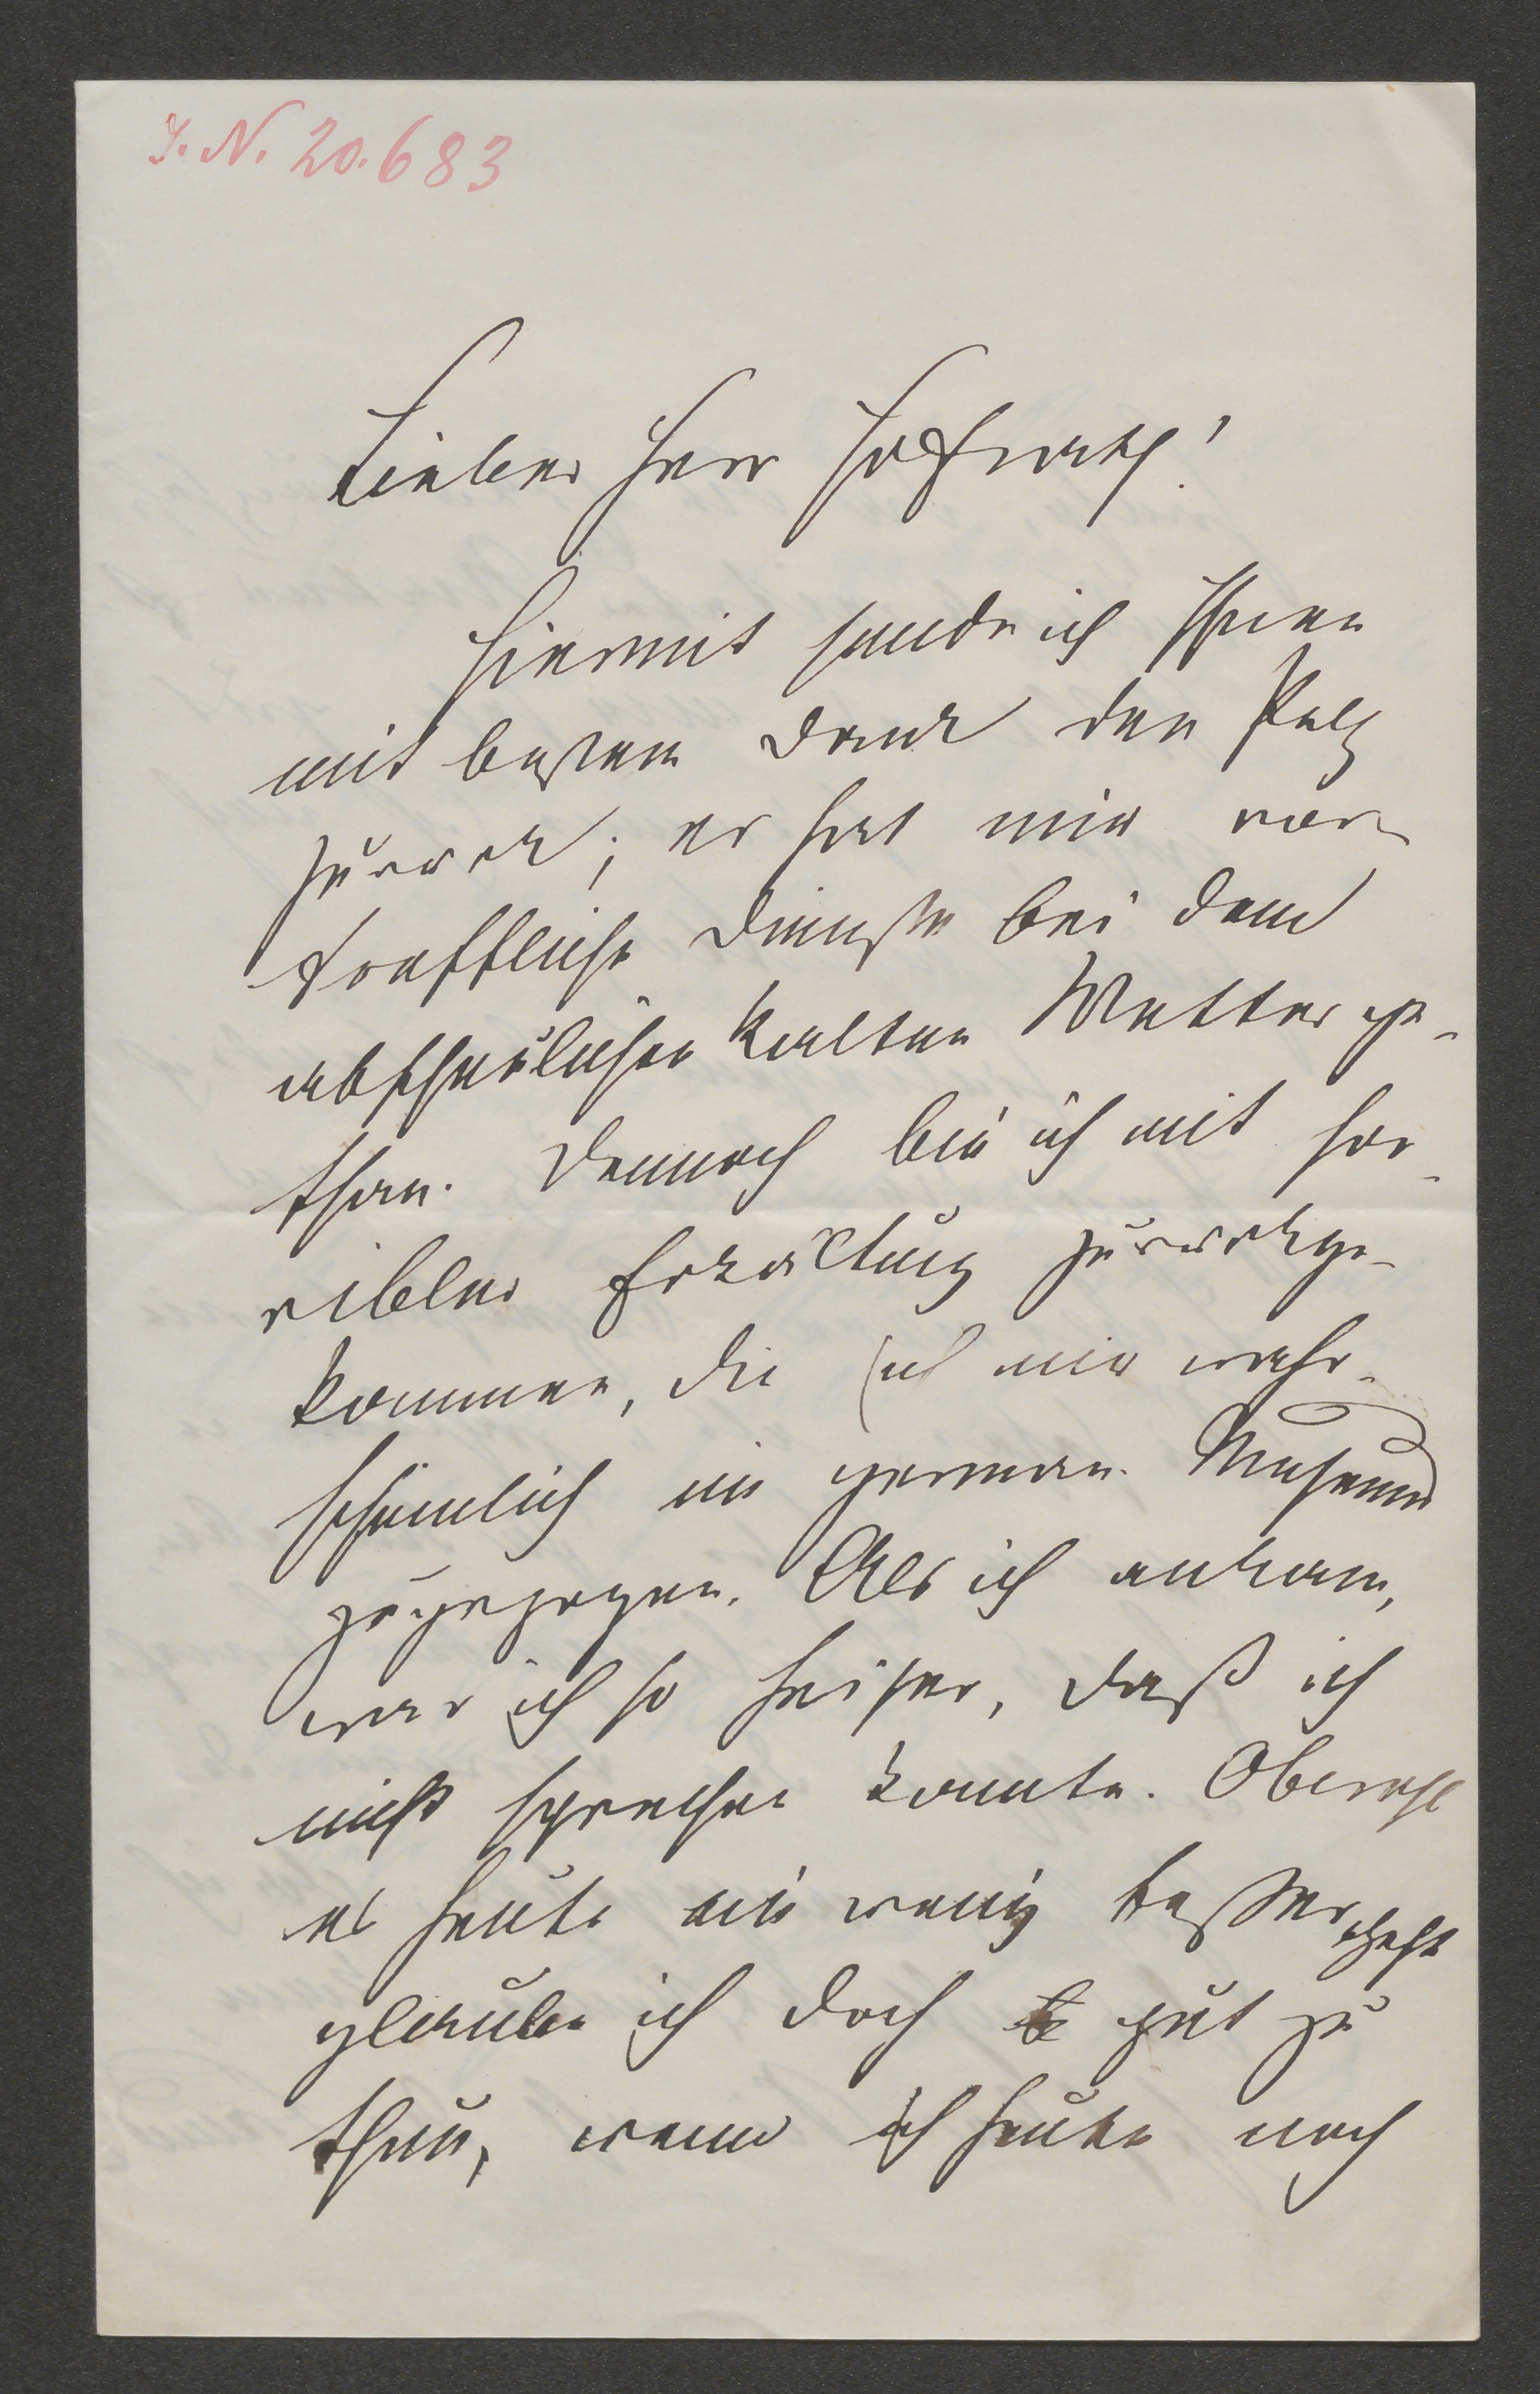 J. N. 20.683
Lieber Herr Hofrath!
Hiermit sende ich Ihnen
mit bestem Dank den Pelz
zurück; er hat mir vor-
treffliche Dienste bei dem
abscheulichen kalten Wetter ge-
than. Dennoch bin ich mit hor-
ribler Erkältung zurückge-
kommen, die ich mir wahr-
scheinlich im german. Museum
zugezogen. Als ich ankam,
war ich so heiser, daß ich
nicht sprechen konnte. Obwohl
es heute ein wenig besser geht
glaube ich doch gut zu
thun, wenn ich heute noch